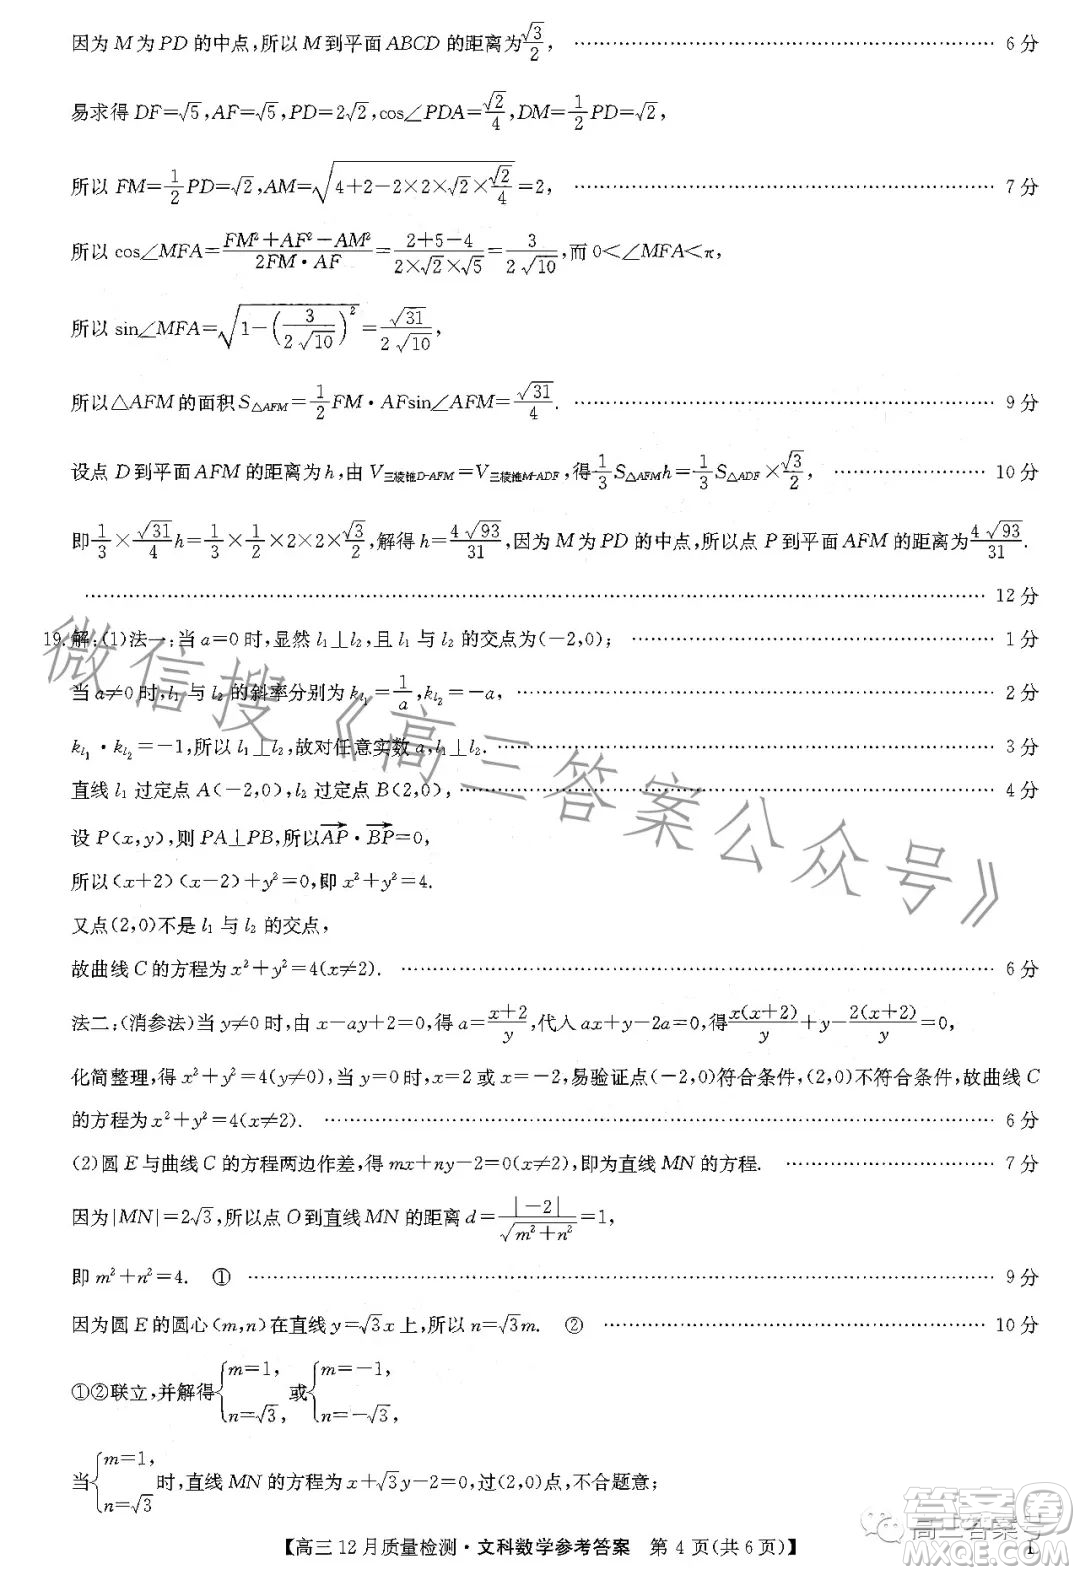 因为M为PD的中点,所以M到平面ABCD的距离为√3/2, ………… 6分
易求得DF=√5,AF=√5,PD=2√2,cos∠PDA=√2/4,DM=1/2PD=√2,
所以FM=1/2PD=√2,AM=√(4+2-2×2×√2×√2/4)=2, ………… 7分
所以cos∠MFA=(FM²+AF²-AM²)/(2FM·AF)=(2+5-4)/(2×√2×√5)=3/(2√10),而0<∠MFA<π,
所以sin∠MFA=√(1-(3/(2√10))²)=√31/(2√10),
所以△AFM的面积S△AFM=1/2FM·AFsin∠AFM=√31/4. ………… 9分
设点D到平面AFM的距离为h,由V三棱锥D-AFM=V三棱锥M-ADF,得1/3S△AFMh=1/3S△ADF×√3/2, ………… 10分
即1/3×√31/4h=1/3×1/2×2×2×√3/2,解得h=4√93/31,因为M为PD的中点,所以点P到平面AFM的距离为4√93/31.
………… 12分
19.解:(1)法一:当a=0时,显然l₁⊥l₂,且l₁与l₂的交点为(-2,0); ………… 1分
当a≠0时,l₁与l₂的斜率分别为kl₁=1/a,kl₂=-a, ………… 2分
kl₁·kl₂=-1,所以l₁⊥l₂,故对任意实数a,l₁⊥l₂. ………… 3分
直线l₁过定点A(-2,0),l₂过定点B(2,0), ………… 4分
设P(x,y),则PA⊥PB,所以AP·BP=0,
所以(x+2)(x-2)+y²=0,即x²+y²=4.
又点(2,0)不是l₁与l₂的交点,
故曲线C的方程为x²+y²=4(x≠2). ………… 6分
法二:(消参法)当y≠0时,由x-ay+2=0,得a=(x+2)/y,代入ax+y-2a=0,得x(x+2)/y+y-2(x+2)/y=0,
化简整理,得x²+y²=4(y≠0),当y=0时,x=2或x=-2,易验证点(-2,0)符合条件,(2,0)不符合条件,故曲线C
的方程为x²+y²=4(x≠2). ………… 6分
(2)圆E与曲线C的方程两边作差,得mx+ny-2=0(x≠2),即为直线MN的方程. ………… 7分
因为|MN|=2√3,所以点O到直线MN的距离d=|-2|/√(m²+n²)=1,
即m²+n²=4. ① ………… 9分
因为圆E的圆心(m,n)在直线y=√3x上,所以n=√3m. ② ………… 10分
①②联立,并解得{m=1, n=√3,或{m=-1, n=-√3,
当{m=1, n=√3时,直线MN的方程为x+√3y-2=0,过(2,0)点,不合题意;
【高三12月质量检测·文科数学参考答案 第4页(共6页)】
微信搜《高三答案公众号》
高三答案号
答案圈